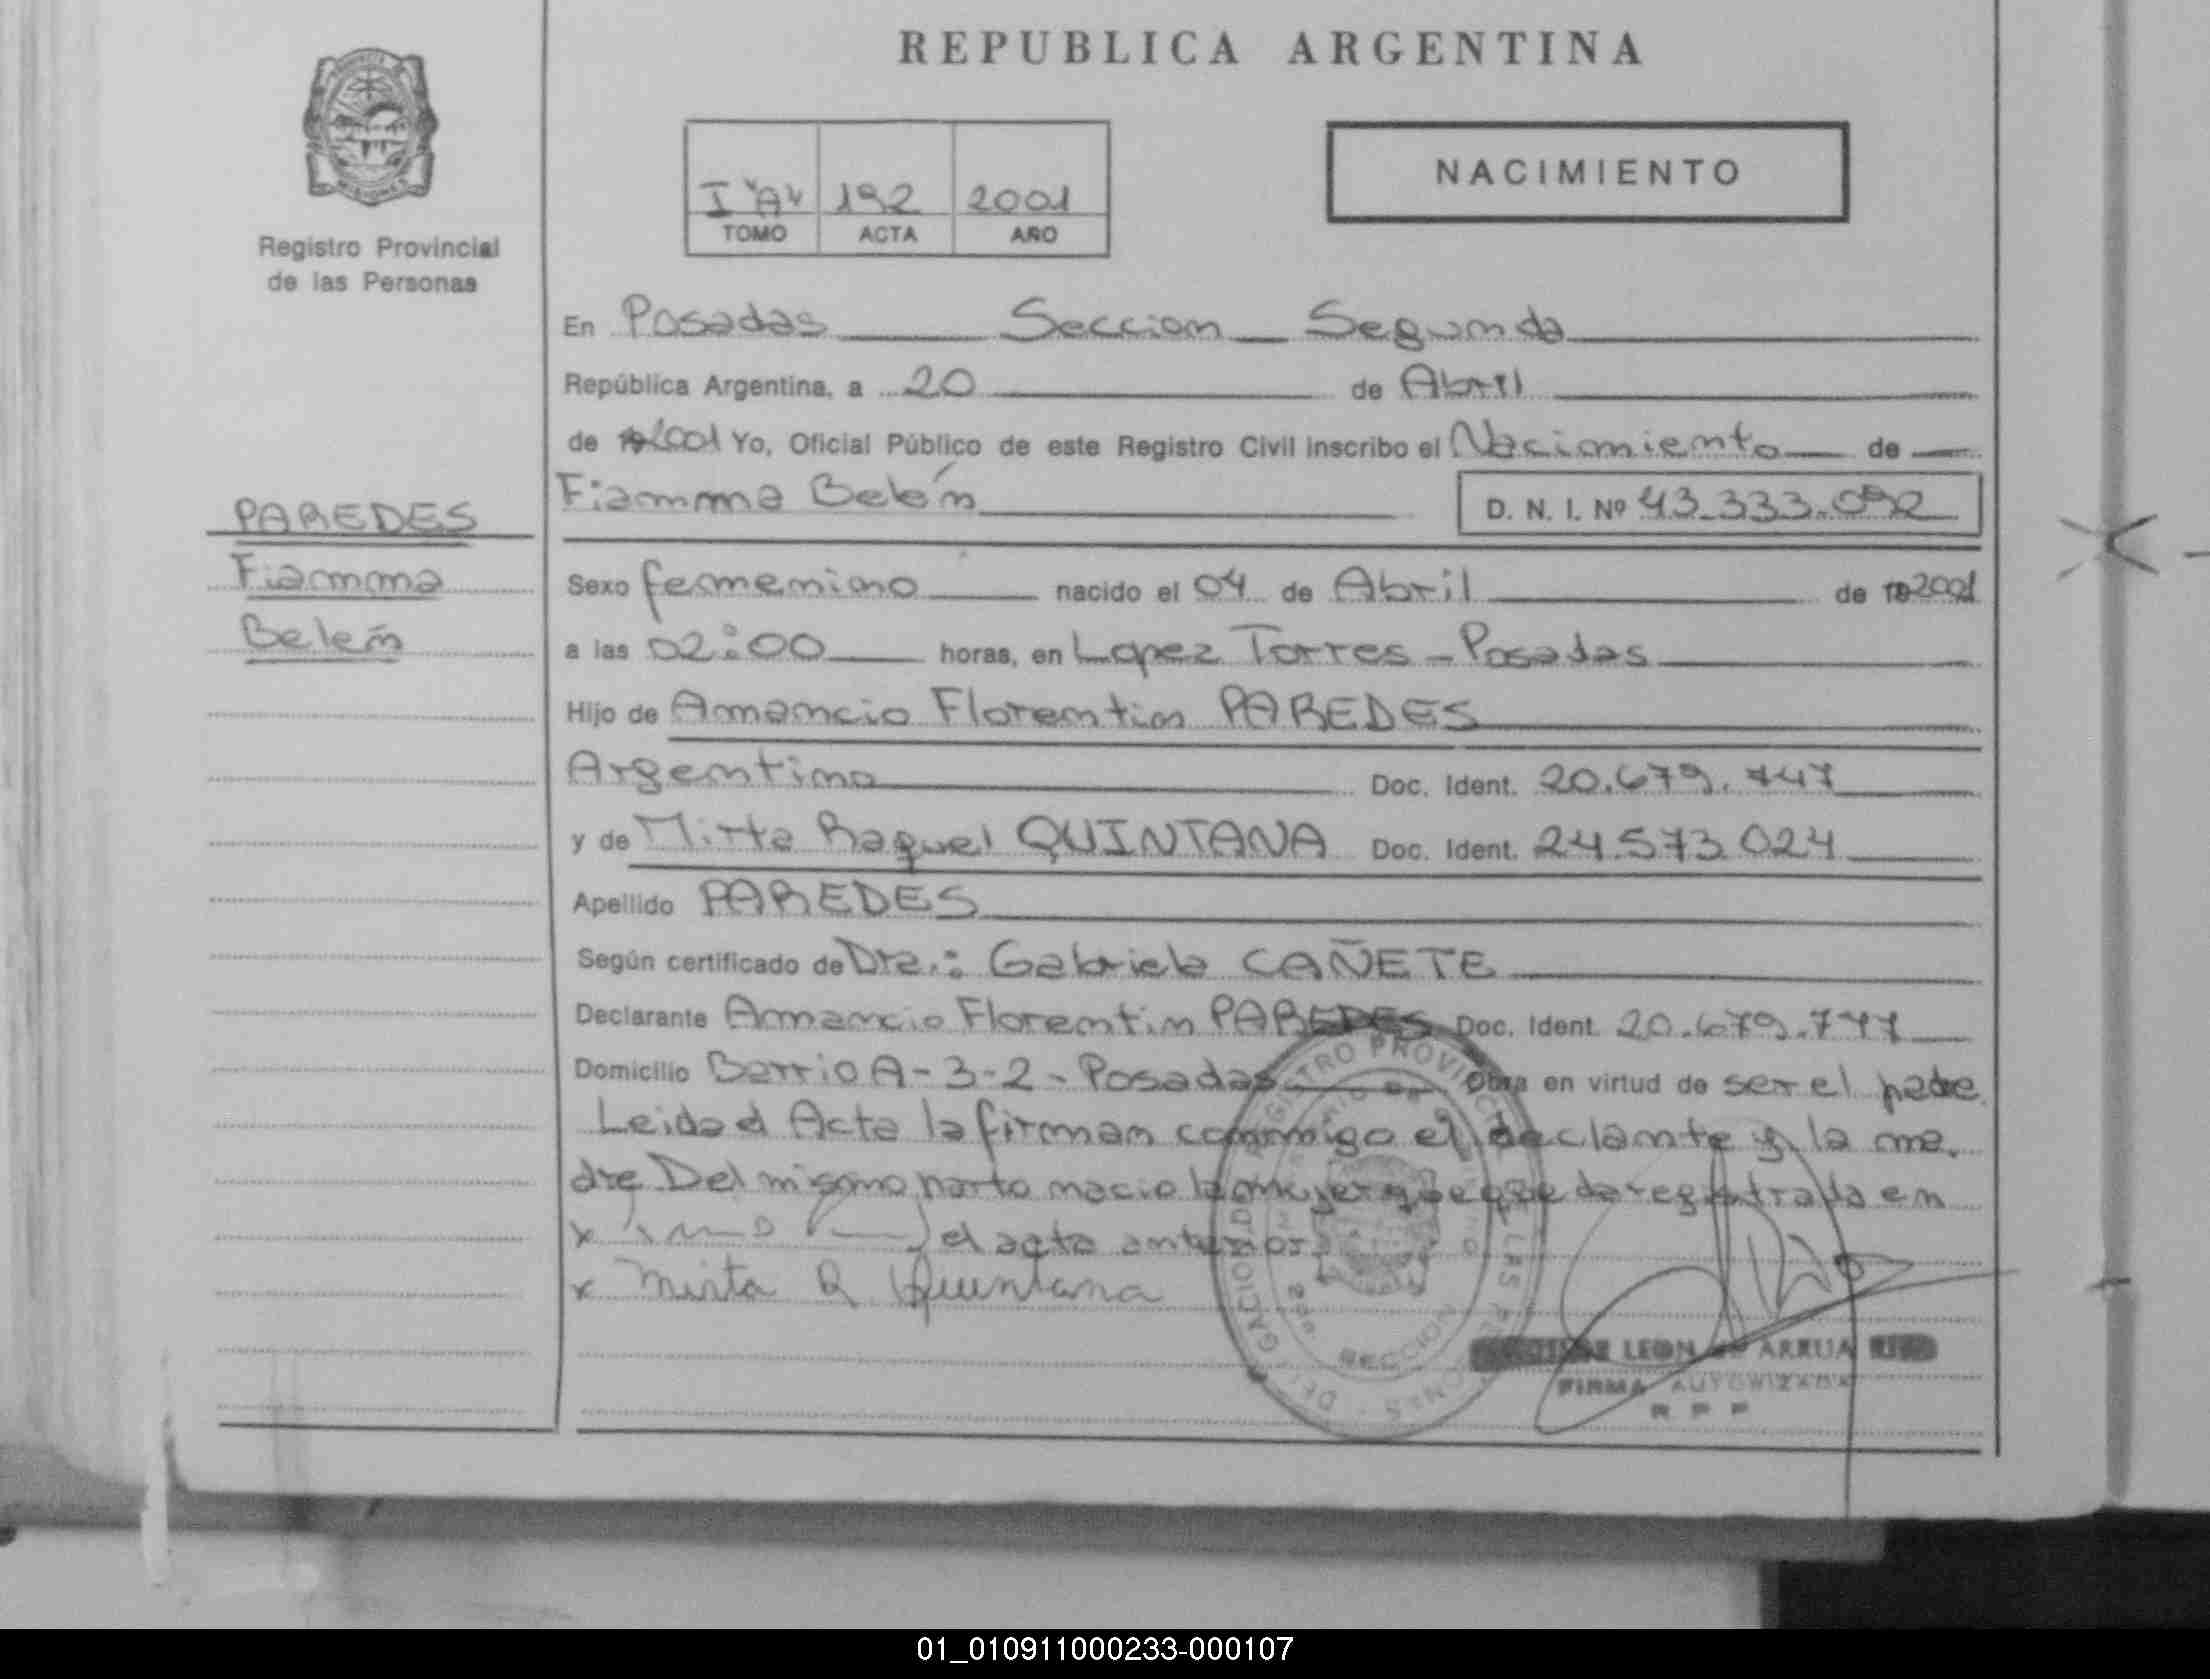 REPUBLICA ARGENTINA
NACIMIENTO
I "A" 192 2001
TOMO ACTA AÑO
Registro Provincial
de las Personas
En Posadas Seccion Segunda
República Argentina, a 20 de Abril
de 2001 Yo, Oficial Público de este Registro Civil inscribo el Nacimiento de
Fiamma Belén D. N. I. Nº 43.333.092
PAREDES
Fiamma
Belén
Sexo femenino nacido el 04 de Abril de 2001
a las 02:00 horas, en Lopez Torres - Posadas
Hijo de Amancio Florentin PAREDES
Argentino Doc. Ident. 20.679.747
y de Mirta Raquel QUINTANA Doc. Ident. 24.573.024
Apellido PAREDES
Según certificado de Dra.: Gabriela CAÑETE
Declarante Amancio Florentin PAREDES Doc. Ident. 20.679.747
Domicilio Barrio A-3-2 - Posadas Obra en virtud de ser el padre.
Leida el Acta la firman conmigo el declante y la ma.
dre Del mismo parto nacio la mujer que queda registrada en
el acta anterior.
x Mirta R Quintana
LEON ARRUA
FIRMA AUTORIZADA
R P P
01_010911000233-000107